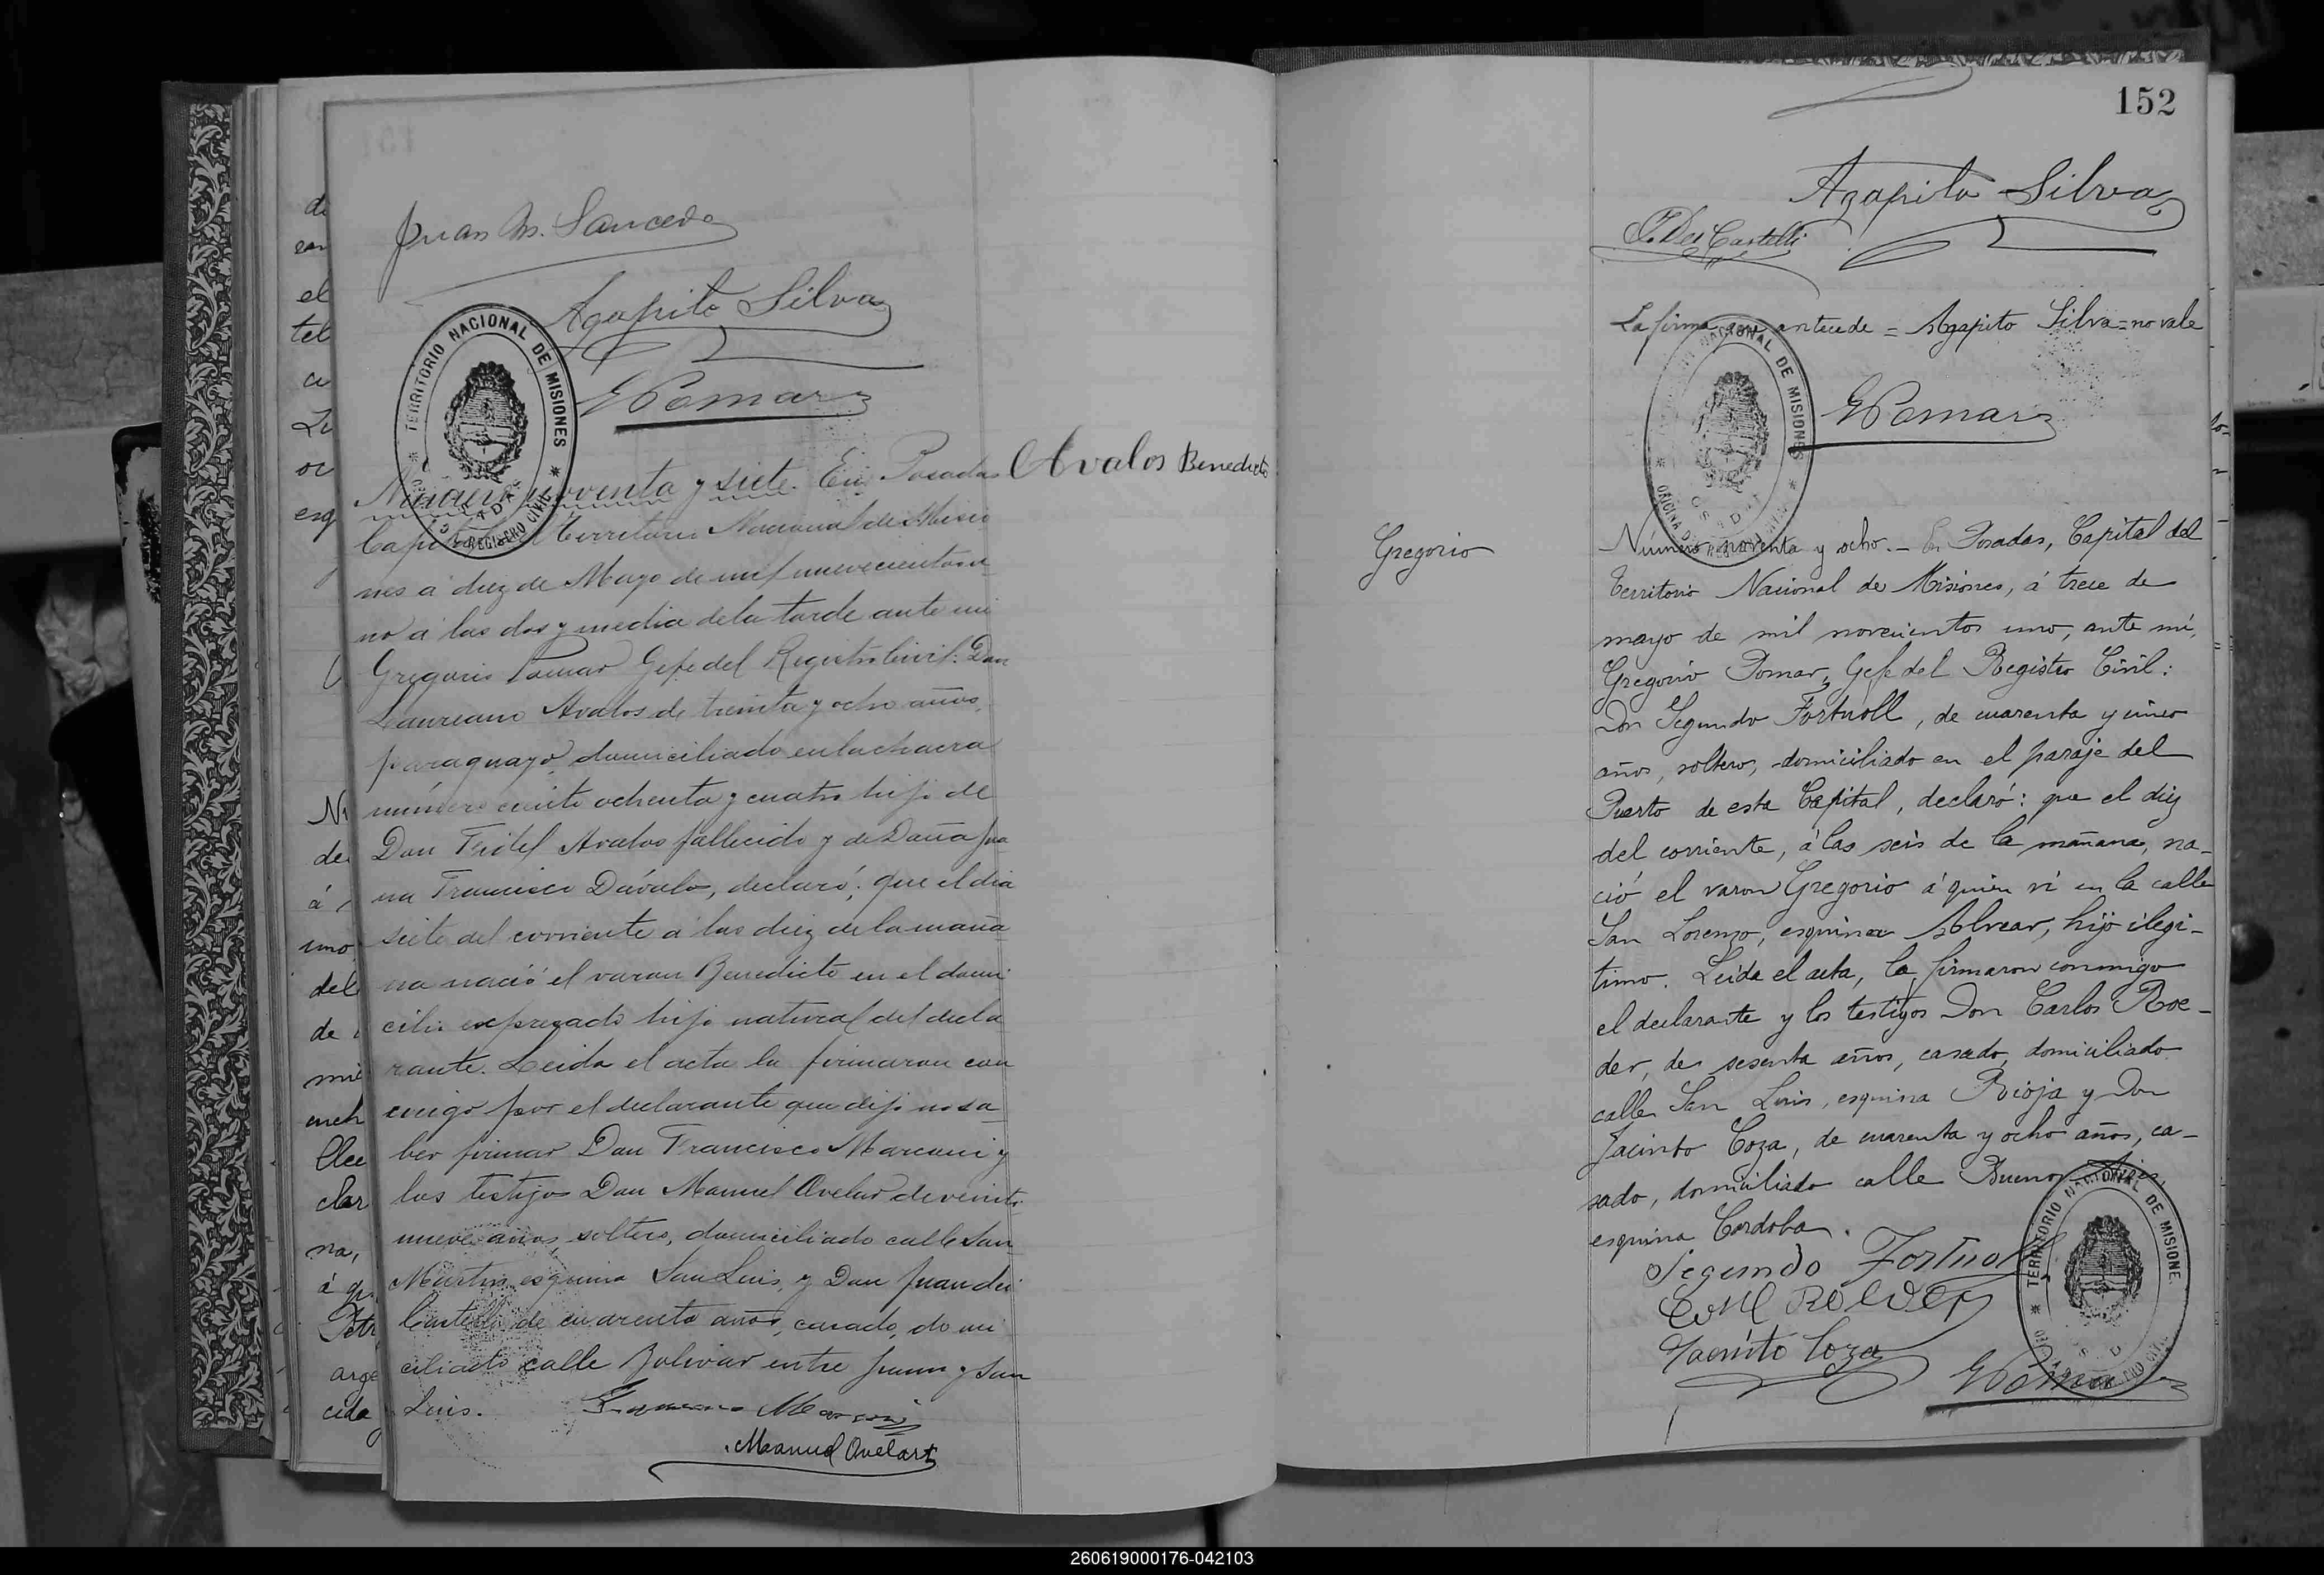 Juan M. Saucedo
Agapito Silva
GPomar
TERRITORIO NACIONAL DE MISIONES
REGISTRO CIVIL
Avalos Benedicto
Número noventa y siete. En Posadas
Capital del Territorio Nacional de Misio
nes á diez de Mayo de mil nuevecientos u-
no á las dos y media de la tarde ante mi
Gregorio Pomar Gefe del Registro Civil: Don
Laureano Avalos de treinta y ocho años,
paraguayo, domiciliado en la chacra
número ciento ochenta y cuatro hijo de
Don Fidel Avalos fallecido y de Doña Jua
na Francisca Dávalo, declaró: que el dia
siete del corriente á las diez de la maña
na nació el varon Benedicto en el domi
cilio expresado hijo natural del decla
rante. Leida el acta la firmaron con
migo por el declarante que dijo no sa
ber firmar Don Francisco Marconi y
los testigos Don Manuel Ovelar de veinte
nueve años, soltero, domiciliado calle San
Martin esquina San Luis, y Don Juan dei
Castelli de cuarenta años, casado, domi
ciliado calle Bolivar entre Junin y San
Luis.
Manuel Ovelar
152
Agapito Silva
J. Dei Castelli
La firma que antecede = Agapito Silva = no vale
TERRITORIO NACIONAL DE MISIONES
OFICINA DEL REGISTRO CIVIL
POSADAS
GPomar
Gregorio
Número noventa y ocho. - En Posadas, Capital del
Territorio Nacional de Misiones, á trece de
mayo de mil novecientos uno, ante mí,
Gregorio Pomar, Gefe del Registro Civil:
Don Segundo Fortnoll, de cuarenta y cinco
años, soltero, domiciliado en el paraje del
Puerto de esta Capital, declaró: que el diez
del corriente, á las seis de la mañana, na-
ció el varon Gregorio á quien ví en la calle
San Lorenzo, esquina Alvear, hijo ilegi-
timo. Leida el acta, la firmaron conmigo
el declarante y los testigos Don Carlos Roe-
der, de sesenta años, casado, domiciliado
calle San Luis, esquina Rioja y Don
Jacinto Coza, de cuarenta y ocho años, ca-
sado, domiciliado calle Buenos Aires
esquina Cordoba.
Segundo Fortnoll
Jacinto Coza
TERRITORIO NACIONAL DE MISIONE
GPomar
260619000176-042103